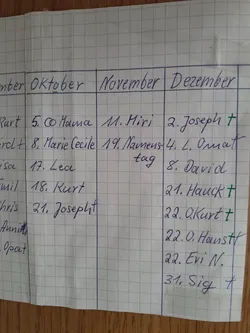 mber Oktober November Dezember
Kurt 5. CO Mama 11. Miri 2. Joseph †
8. Marie Cecile 19. Namens- 4. L. Oma †
17. Lea tag 8. David
18. Kurt 21. Hauck †
21. Joseph † 22. O. Kurt †
22. O. Hans †
Opa † 22. Evi N.
31. Sig †